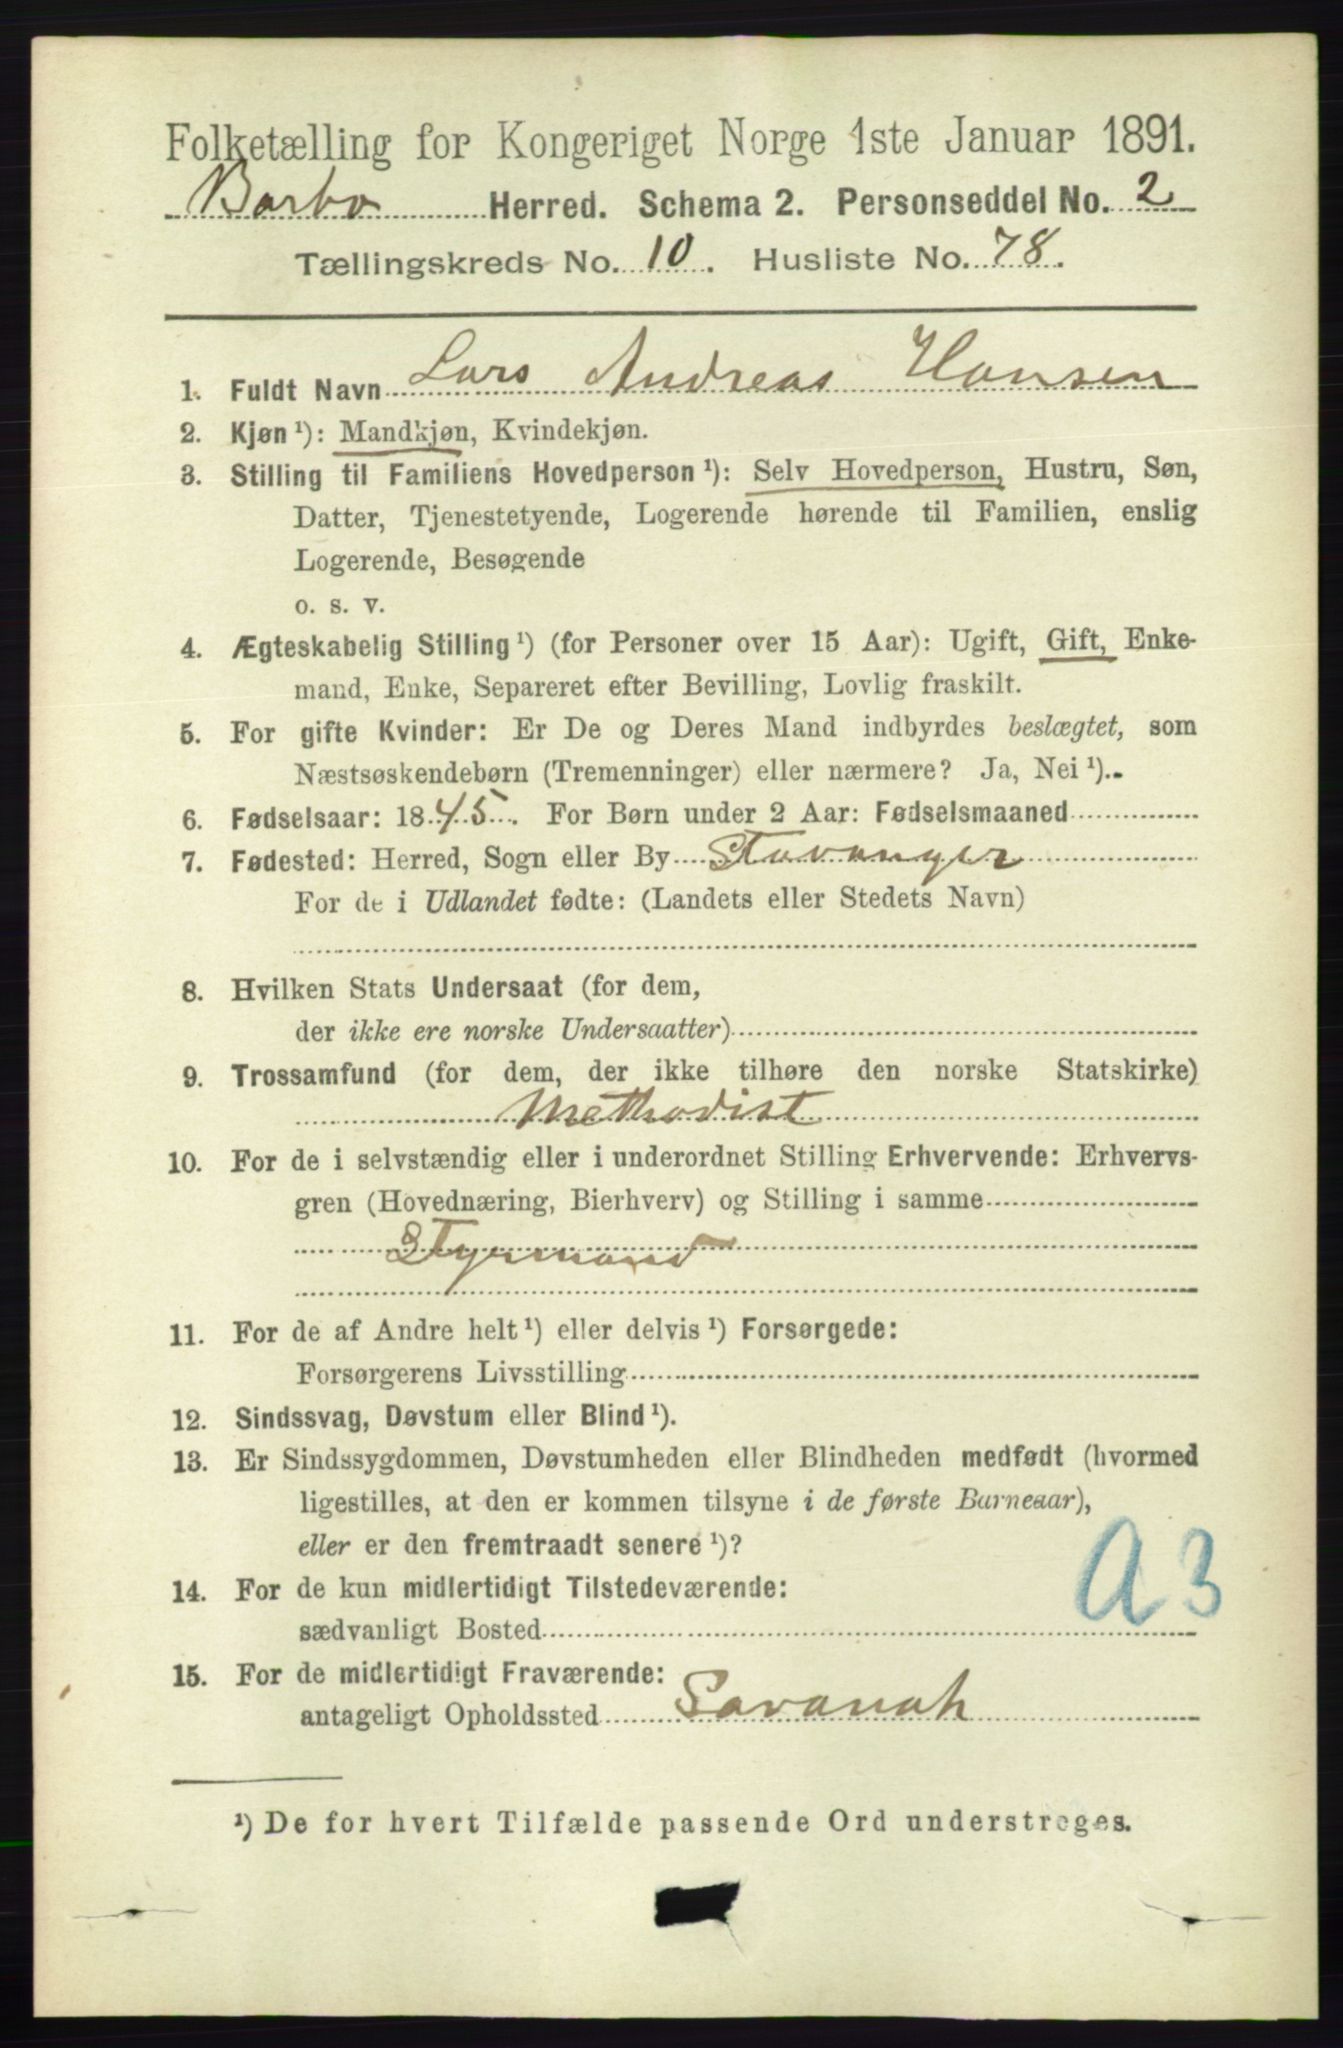 Folketælling for Kongeriget Norge 1ste Januar 1891.
Barbo Herred. Schema 2. Personseddel No. 2
Tællingskreds No. 10. Husliste No. 78.
1. Fuldt Navn Lars Andreas Hansen
2. Kjøn ¹): Mandkjøn, Kvindekjøn.
3. Stilling til Familiens Hovedperson ¹): Selv Hovedperson, Hustru, Søn,
Datter, Tjenestetyende, Logerende hørende til Familien, enslig
Logerende, Besøgende
o. s. v.
4. Ægteskabelig Stilling ¹) (for Personer over 15 Aar): Ugift, Gift, Enke-
mand, Enke, Separeret efter Bevilling, Lovlig fraskilt.
5. For gifte Kvinder: Er De og Deres Mand indbyrdes beslægtet, som
Næstsøskendebørn (Tremenninger) eller nærmere? Ja, Nei ¹).
6. Fødselsaar: 1845. For Børn under 2 Aar: Fødselsmaaned
7. Fødested: Herred, Sogn eller By Stavanger
For de i Udlandet fødte: (Landets eller Stedets Navn)
8. Hvilken Stats Undersaat (for dem,
der ikke ere norske Undersaatter)
9. Trossamfund (for dem, der ikke tilhøre den norske Statskirke)
Methodist
10. For de i selvstændig eller i underordnet Stilling Erhvervende: Erhvervs-
gren (Hovednæring, Bierhverv) og Stilling i samme
Styrmand
11. For de af Andre helt ¹) eller delvis ¹) Forsørgede:
Forsørgerens Livsstilling
12. Sindssvag, Døvstum eller Blind ¹).
13. Er Sindssygdommen, Døvstumheden eller Blindheden medfødt (hvormed
ligestilles, at den er kommen tilsyne i de første Barneaar),
eller er den fremtraadt senere ¹)?
A3
14. For de kun midlertidigt Tilstedeværende:
sædvanligt Bosted
15. For de midlertidigt Fraværende:
antageligt Opholdssted Savanah
¹) De for hvert Tilfælde passende Ord understreges.